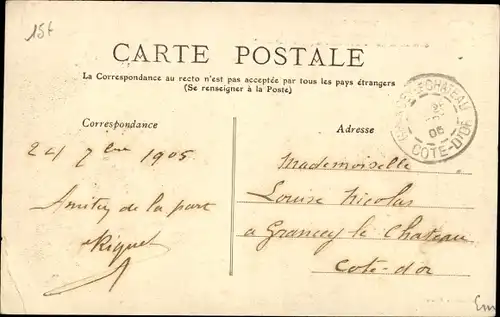 15f
CARTE POSTALE
La Correspondance au recto n'est pas acceptée par tous les pays étrangers
(Se renseigner à la Poste)
CHATEAU
05
COTE-D'OR
Correspondance
Adresse
24 7bre 1905
Mademoiselle
Louise Nicolas
Amitiés de la part
Riquet
a Grancey le Chateau
Cote-d'or